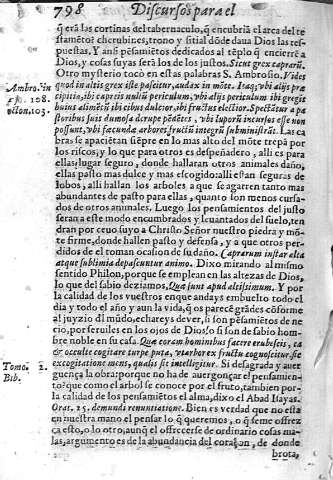 798 Discursos para el
q̃ erã las cortinas del tabernaculo, q̃ encubriã el arca del te
stamẽto? cherubines, trono y sitial dõde daua Dios las res
puestas. Y ansi pẽsamiẽtos dedicados al tẽplo q̃ encierrẽ a
Dios, y cosas suyas serã los de los justos. Sicut grex caprarũ.
Otro mysterio tocò en estas palabras S. Ambrosio. Vides
Ambro. in
108.
quod in altis grex iste pascitur, audax in mõte. Itaq; vbi alijs præ
cipitia, ibi capreis nullũ periculum, vbi alijs periculum ibi gregis
huius alimẽtũ ibi cibus dulcior, ibi fructus electior. Spectãtur a pa
storibus suis dumosa de rupe pẽdẽtes, vbi luporũ incursus esse non
possunt, vbi facundæ arbores fructũ integrũ subministrãt. Las ca
bras se apaciẽtan siẽpre en lo mas alto del mõte trepã por
los riscos, y lo que para otros es despeñadero, alli es para
ellas, lugar seguro, donde hallaran otros animales daño,
ellas pasto mas dulce y mas escogido: alli estan seguras de
lobos, alli hallan los arboles a que se agarren tanto mas
abundantes de pasto para ellas, quanto son menos cursa-
dos de otros animales. Luego los pensamientos del justo
seran a este modo encumbrados y leuantados del suelo, ten
dran por ceuo suyo a Christo Señor nuestro piedra y mõ-
te firme, donde hallen pasto y defensa, y a que otros per-
didos de el toman ocasion de su daño. Caprarum instar ela
atque sublimia depascuntur animo. Dixo mirando al mismo
sentido Philon, porque se emplean en las altezas de Dios,
lo que del sabio deziamos, Quæ sunt apud altissimum. Y por
la calidad de los vuestros en que andays embuelto todo el
dia y todo el año y aun la vida, q̃ os parece grãdes cõforme
al juyzio dl mũdo, echareys de ver, si son pẽsamiẽtos de ne
cio, por seruiles en los ojos de Dios: o si son de sabio hom-
bre noble en su casa. Quæ coram hominibus facere erubescis, ea
& occulte cogitare turpe puta, vt arbor ex fructu cognoscitur, sic
excogitatione mens, qualis sit intelligitur. Si desagrada y auer
Tomo. 2.
Bib.
guença la obra: porque no ha de auergonçar el pensamien-
to? que como el arbol se conoce por el fruto, tambien por
la calidad de los pensamientos el alma, dixo el Abad Isayas.
Orat. 25. demundi renuntiatione. Bien es verdad que no està
en nuestra mano el pensar lo q̃ queremos, o q̃ se me ofrez
ca esto, o lo otro, aunq̃ el offrecerse de ordinario cosas ma-
las, argumento es de la abundancia del coraçan, de donde
brota,